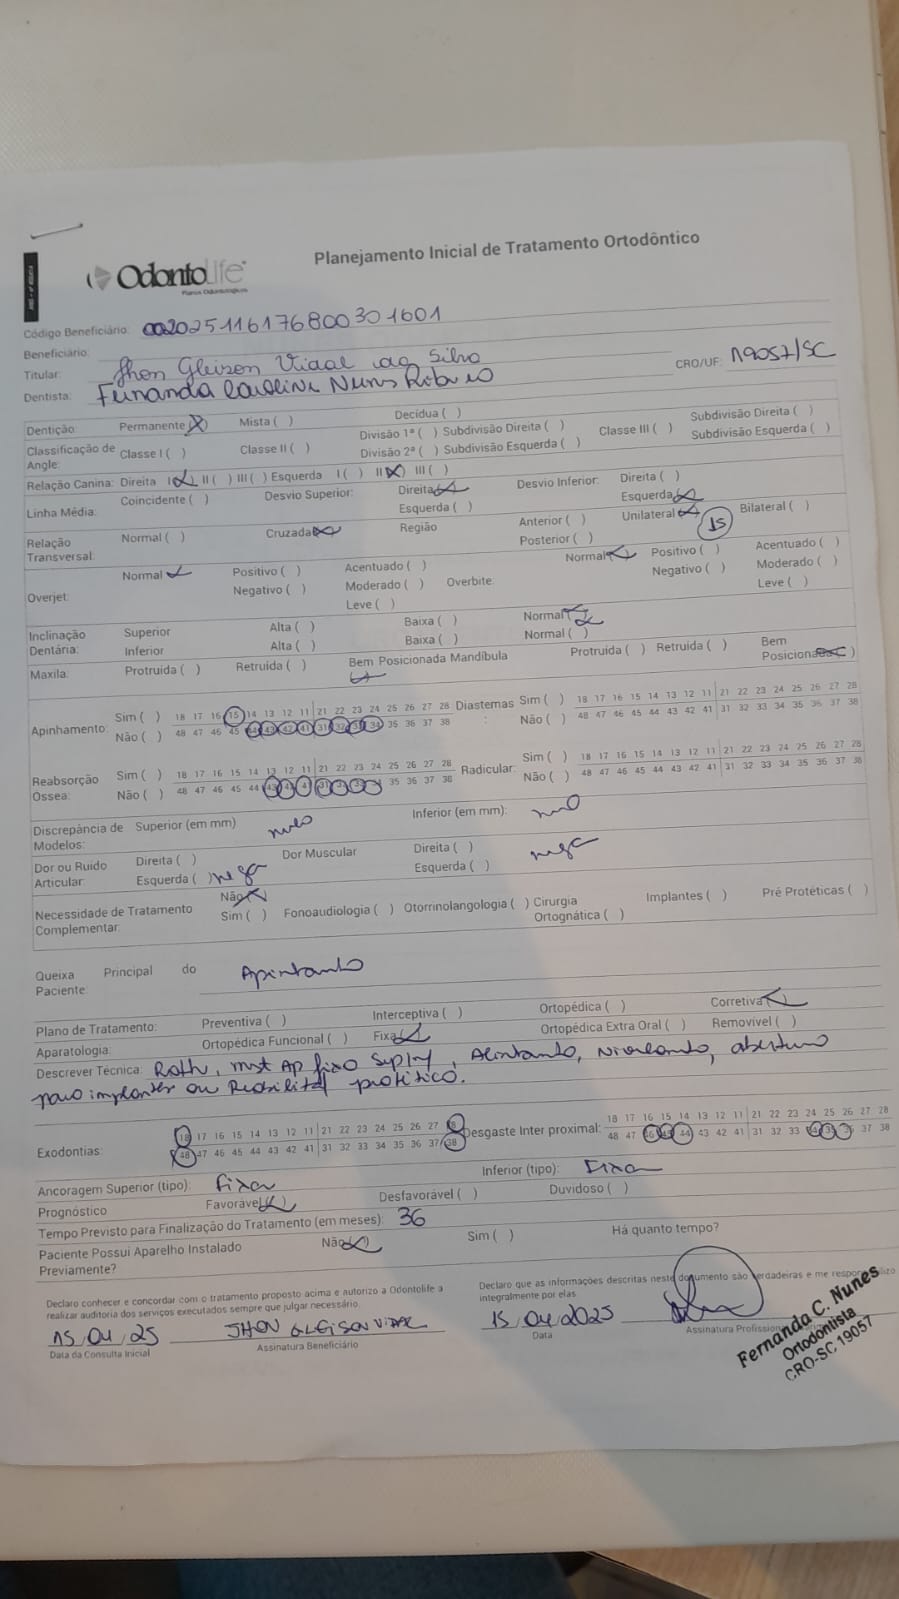 Planejamento Inicial de Tratamento Ortodôntico
OdontoLife
Planos Odontológicos
Código Beneficiário: 00202511617680030 1601
Beneficiário:
Titular: Jhon Gleizon Vidal da Silva
Dentista: Fernanda Caroline Nunes Ribeiro CRO/UF: 19057/SC
Dentição: Permanente (X) Mista ( ) Decídua ( )
Classificação de Angle: Classe I ( ) Classe II ( ) Divisão 1ª ( ) Subdivisão Direita ( ) Classe III ( ) Subdivisão Direita ( )
Divisão 2ª ( ) Subdivisão Esquerda ( ) Subdivisão Esquerda ( )
Relação Canina: Direita I (X) II ( ) III ( ) Esquerda I ( ) II (X) III ( )
Linha Média: Coincidente ( ) Desvio Superior: Direita (X) Desvio Inferior: Direita ( )
Esquerda ( ) Esquerda (X)
Relação Transversal: Normal ( ) Cruzada (X) Região Anterior ( ) Unilateral (X) 15 Bilateral ( )
Posterior ( )
Overjet: Normal (X) Positivo ( ) Acentuado ( ) Overbite: Normal (X) Positivo ( ) Acentuado ( )
Negativo ( ) Moderado ( ) Negativo ( ) Moderado ( )
Leve ( ) Leve ( )
Inclinação Dentária: Superior Alta ( ) Baixa ( ) Normal (X)
Inferior Alta ( ) Baixa ( ) Normal ( )
Maxila: Protruida ( ) Retruida ( ) Bem Posicionada (X) Mandíbula Protruida ( ) Retruida ( ) Bem Posicionada (X)
Apinhamento: Sim ( ) 18 17 16 15 14 13 12 11 21 22 23 24 25 26 27 28 Diastemas: Sim ( ) 18 17 16 15 14 13 12 11 21 22 23 24 25 26 27 28
Não ( ) 48 47 46 45 44 43 42 41 31 32 33 34 35 36 37 38 Não ( ) 48 47 46 45 44 43 42 41 31 32 33 34 35 36 37 38
Reabsorção Óssea: Sim ( ) 18 17 16 15 14 13 12 11 21 22 23 24 25 26 27 28 Radicular: Sim ( ) 18 17 16 15 14 13 12 11 21 22 23 24 25 26 27 28
Não ( ) 48 47 46 45 44 43 42 41 31 32 33 34 35 36 37 38 Não ( ) 48 47 46 45 44 43 42 41 31 32 33 34 35 36 37 38
Discrepância de Modelos: Superior (em mm) Inferior (em mm):
Dor ou Ruído Articular: Direita ( ) Dor Muscular Direita ( ) nega
Esquerda ( ) nega Esquerda ( )
Necessidade de Tratamento Complementar: Não (X)
Sim ( ) Fonoaudiologia ( ) Otorrinolangologia ( ) Cirurgia Ortognática ( ) Implantes ( ) Pré Protéticas ( )
Queixa Principal do Paciente:
Plano de Tratamento: Preventiva ( ) Interceptiva ( ) Ortopédica ( ) Corretiva (X)
Aparatologia: Ortopédica Funcional ( ) Fixa (X) Ortopédica Extra Oral ( ) Removível ( )
Descrever Técnica: Roth, inst Ap fixo Sup/Inf, Alinhando, Nivelando, abertura
para implantes ou Reabilital protético.
Exodontias: 18 17 16 15 14 13 12 11 21 22 23 24 25 26 27 28 Desgaste Inter proximal: 18 17 16 15 14 13 12 11 21 22 23 24 25 26 27 28
48 47 46 45 44 43 42 41 31 32 33 34 35 36 37 38 48 47 46 45 44 43 42 41 31 32 33 34 35 36 37 38
Ancoragem Superior (tipo): Fixa Inferior (tipo): Fixa
Prognóstico Favorável (X) Desfavorável ( ) Duvidoso ( )
Tempo Previsto para Finalização do Tratamento (em meses): 36
Paciente Possui Aparelho Instalado Previamente? Não (X) Sim ( ) Há quanto tempo?
Declaro conhecer e concordar com o tratamento proposto acima e autorizo a Odontolife a
realizar auditoria dos serviços executados sempre que julgar necessário.
Declaro que as informações descritas neste documento são verdadeiras e me responsabilizo
integralmente por elas
15/04/25 JHON GLEISON VIDAL 15/04/2025
Data da Consulta Inicial Assinatura Beneficiário Data Assinatura Profissional
Fernanda C. Nunes
Ortodontista
CRO-SC 19057